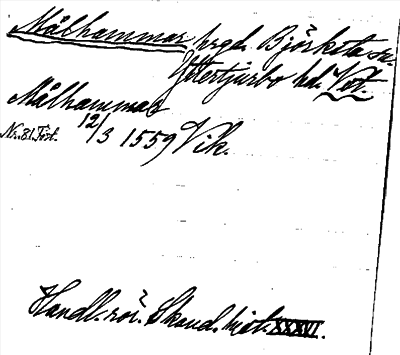 Målhammar hrgd. Björksta sn.
Yttertjurbo hd. Vst.
Målhammar
Nr. 81. Fört. 12/3 1559 Vik.
Handl. rör. Skand. hist. XXXVI.